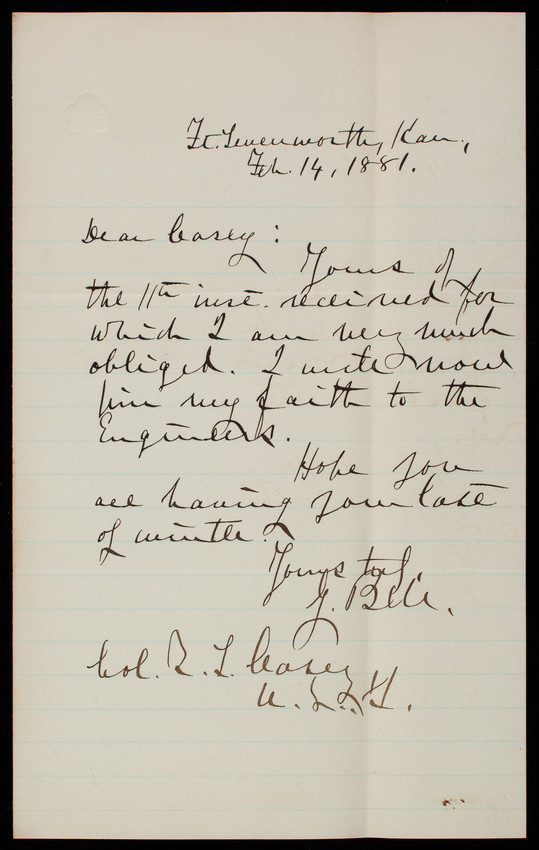 Ft. Levenworth, Kan.,
Feb. 14, 1881.
Dear Casey:
Yours of
the 11th inst. received for
which I am very much
obliged. I write now
my faith to the
Engineers.
Hope you
are having your last
of winter.
Yours
G. Bell.
Col. T. L. Casey
U. S. A.